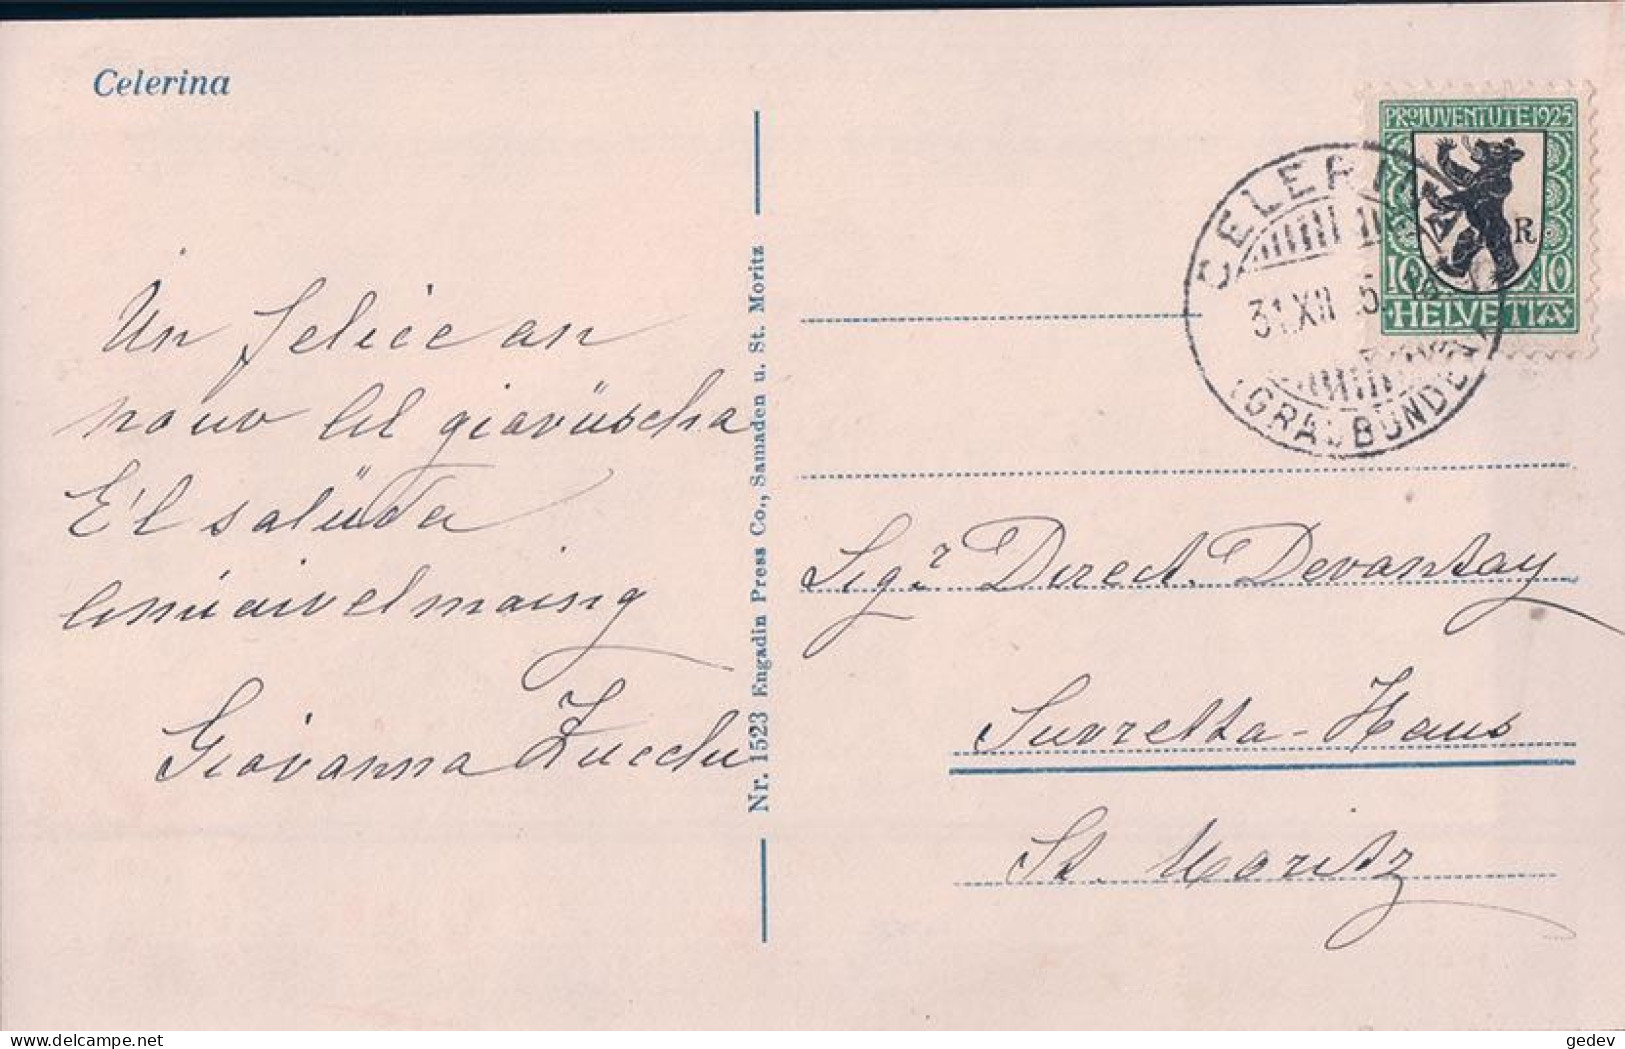 Celerina
Un felice an
nouv lil giavüscha
E'l salüda
amiaivelmaing
Giovanna
Nr. 1523 Engadin Press Co., Samaden u. St. Moritz
PRO JUVENTUTE 1925
R
10 10
HELVETIA
CELERINA
31.XII
(GRAUBÜNDEN)
Sigr Direct. Devantay
Suvretta-Haus
St. Moritz
delcampe.net
gedev